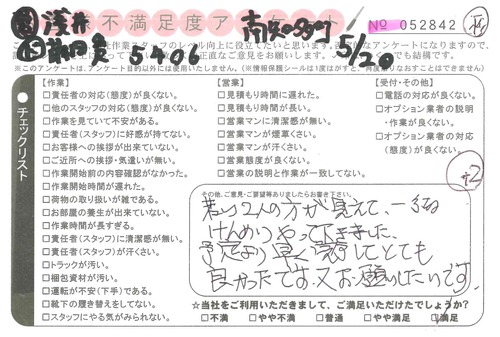 営 浅井 南知多町 No 052842
不満足度アンケート
5406 5/20
作業スタッフのレベル向上に役立てたいと思います。
【作業】
□責任者の対応(態度)が良くない。
□他のスタッフの対応(態度)が良くない。
□作業を見ていて不安がある。
□責任者(スタッフ)に好感が持てない。
□お客様への挨拶が出来ていない。
□ご近所への挨拶・気遣いが無い。
□作業開始前の内容確認がなかった。
□作業開始時間が遅れた。
□荷物の取り扱いが雑である。
□お部屋の養生が出来ていない。
□作業時間が長すぎる。
□責任者(スタッフ)に清潔感が無い。
□責任者(スタッフ)が汗くさい。
□トラックが汚い。
□梱包資材が汚い。
□運転が不安(下手)である。
□靴下の履き替えをしてない。
□スタッフにやる気がみられない。
【営業】
□見積もり時間に遅れた。
□見積もり時間が長い。
□営業マンに清潔感が無い。
□営業マンが煙草くさい。
□営業マンが汗くさい。
□営業態度が良くない。
□営業の説明と作業が一致してない。
【受付・その他】
□電話の対応が良くない。
□オプション業者の説明
・作業が良くない。
□オプション業者の対応
(態度)が良くない。
チェックリスト
+2
その他、ご意見・ご要望等ありましたらお書き下さい。
若い2人の方が見えて、
けんめいやって下さきました、
予定より早く してとても
良かったです。又お願いしたいです。
☆当社をご利用いただきまして、ご満足いただけたでしょうか?
□不満 □やや不満 □普通 □やや満足 □満足